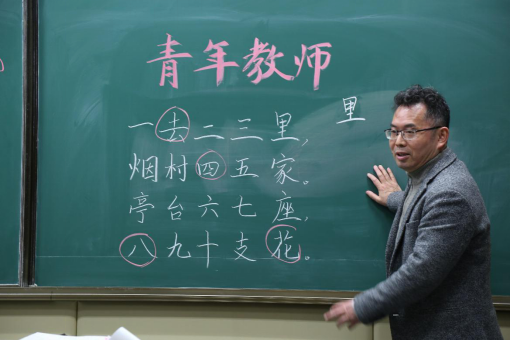 青年教师
里
一去二三里，
烟村四五家。
亭台六七座，
八九十支花。